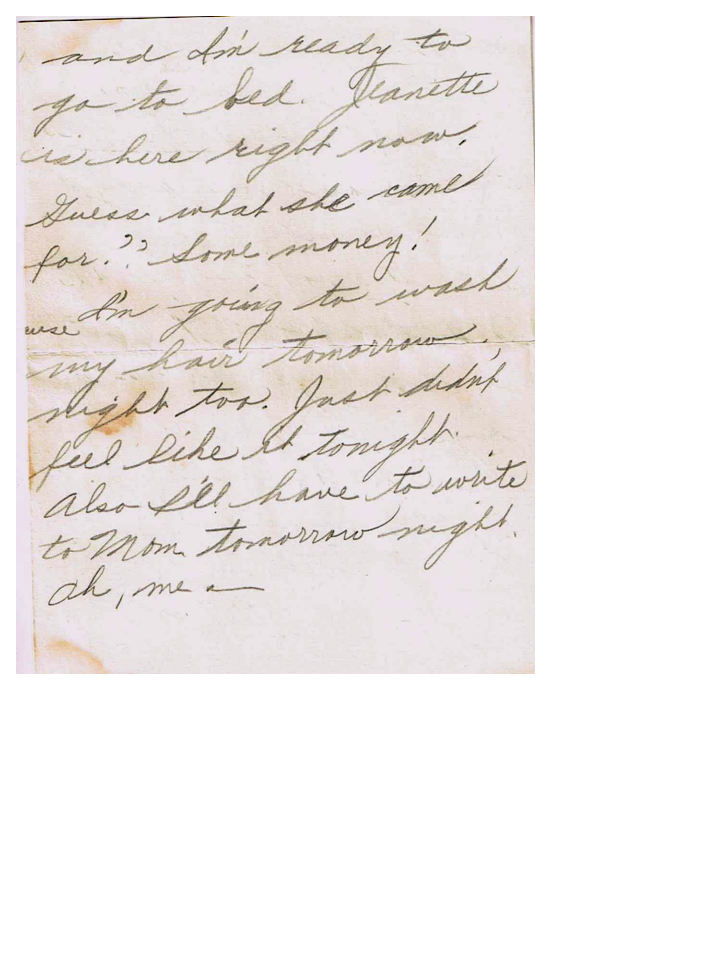 and I'm ready to
go to bed. Jeanette
is here right now.
Guess what she came
for.?? Some money!
I'm going to wash
my hair tomorrow
night too. Just didn't
feel like it tonight.
Also I'll have to write
to Mom tomorrow night.
Oh, me —